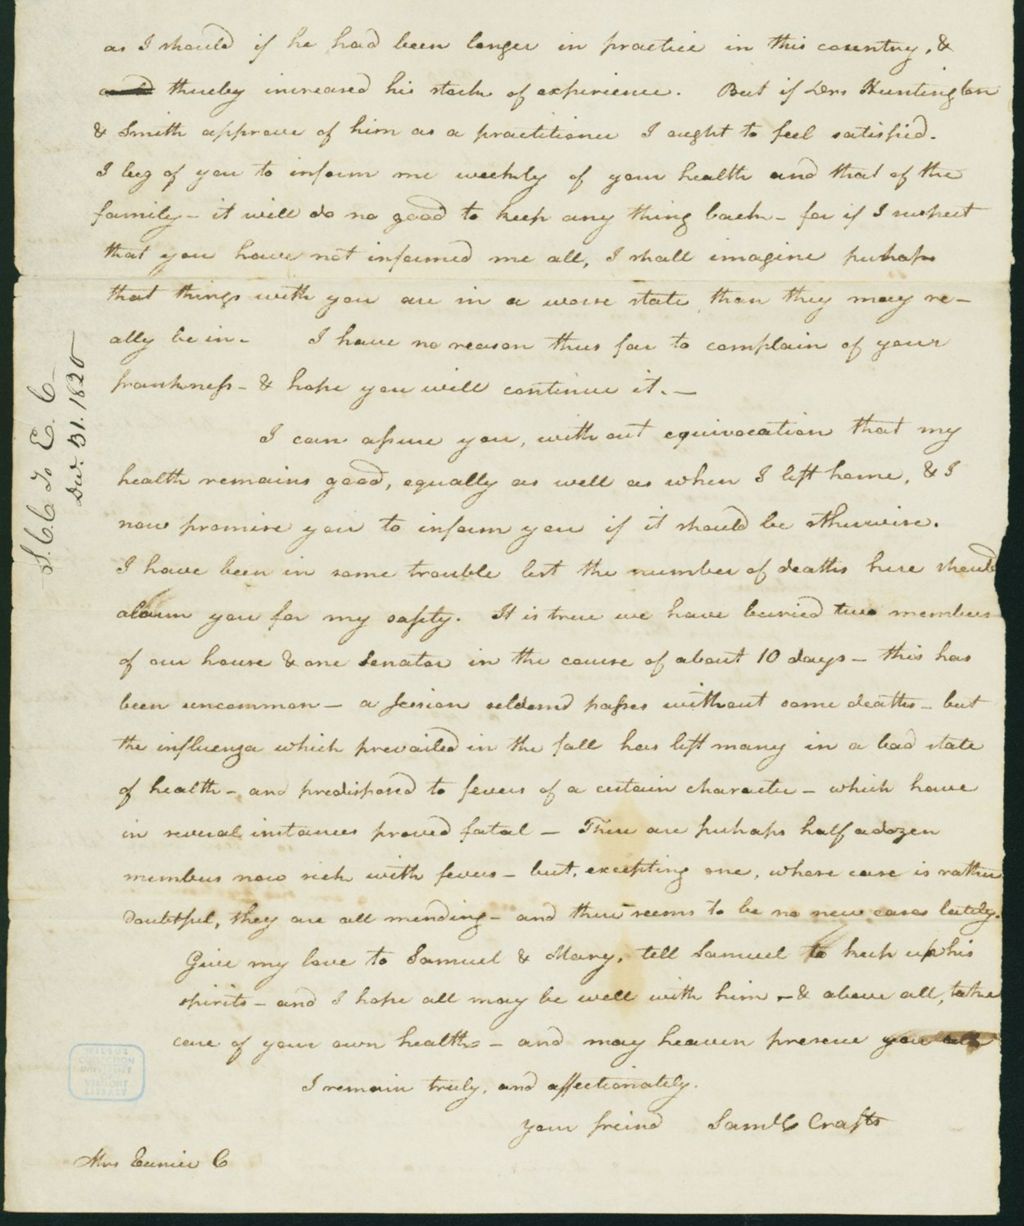 as I should if he had been longer in practice in this country, &
and thereby increased his stock of experience. But if Drs Huntington
& Smith approve of him as a practitioner I ought to feel satisfied.
I beg of you to inform me weekly of your health and that of the
family – it will do no good to keep any thing back – for if I suspect
that you have not informed me all, I shall imagine perhaps
that things with you are in a worse state than they may re–
ally be in – I have no reason thus far to complain of your
frankness – & hope you will continue it. –
I can assure you, without equivocation that my
health remains good, equally as well as when I left home, & I
now promise you to inform you if it should be otherwise.
I have been in some trouble lest the number of deaths here should
alarm you for my safety. It is true we have buried two members
of our house & one Senator in the course of about 10 days – this has
been uncommon – a session seldomd passes without some deaths – but
the influenza which prevailed in the fall has left many in a bad state
of health – and predisposed to fevers of a certain character – which have
in several instances proved fatal – There are perhaps half a dozen
members now sick with fevers – but, excepting one, whose case is rather
doubtful, they are all mending – and there seems to be no new cases lately.
Give my love to Samuel & Mary, tell Samuel to keep up his
spirits – and I hope all may be well with him – & above all, take
care of your own health – and may heaven preserve you all
I remain truly, and affectionately.
your freind Saml C Crafts
Mrs Eunice C
S. C. C to E. C.
Dec. 31. 1820
WILBUR
COLLECTION
UNIVERSITY
OF
VERMONT
LIBRARY